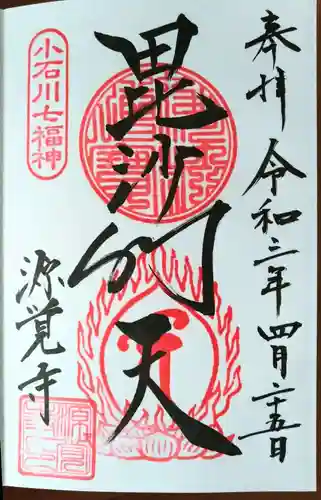 奉拝 令和三年四月二十五日
毘沙門天
小石川七福神
源覚寺